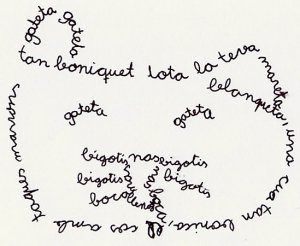 gateta gateta
tan boniquet tota la teva
mareta,
blanqueta, una cua tan bonica, el cos amb taques
gateta gateta
bigotis nas bigotis
bigotis bigotis
boca